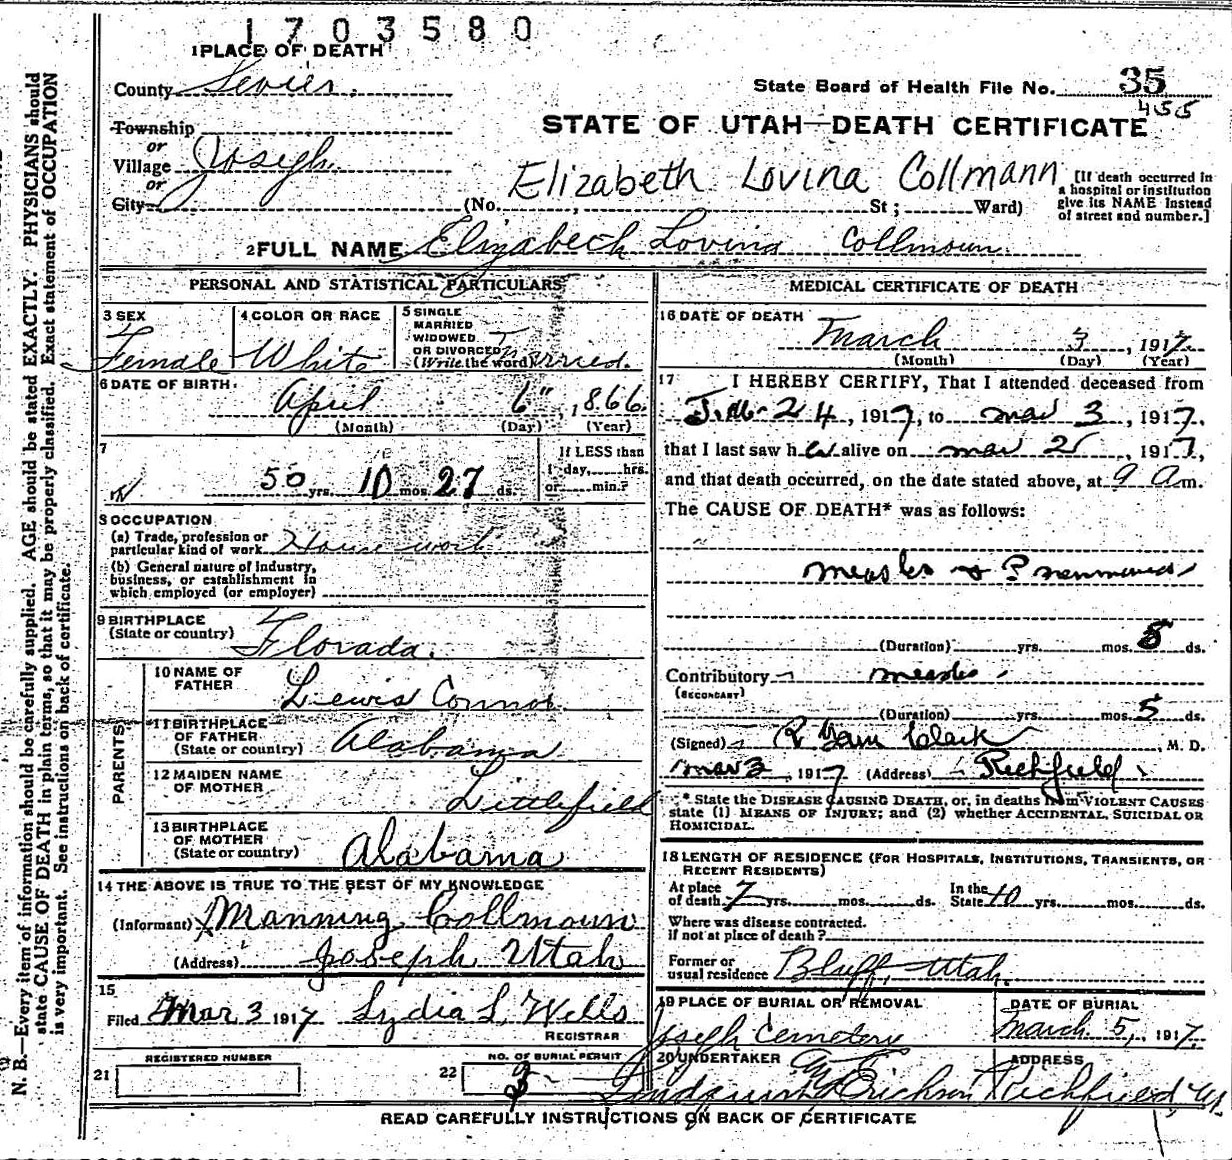 1703580
1 PLACE OF DEATH
County Sevier.
State Board of Health File No. 35
455
Township
or
Village Joseph.
or
City
STATE OF UTAH—DEATH CERTIFICATE
Elizabeth Lovina Collmann
(No. , St ; Ward)
[If death occurred in
a hospital or institution
give its NAME instead
of street and number.]
2 FULL NAME Elizabeth Lovina Collmoun.
PERSONAL AND STATISTICAL PARTICULARS
3 SEX
Female
4 COLOR OR RACE
White
5 SINGLE
MARRIED
WIDOWED
OR DIVORCED
(Write the word)
Married.
6 DATE OF BIRTH.
April 6", 1866
(Month) (Day) (Year)
7
50 yrs. 10 mos. 27 ds.
If LESS than
1 day, hrs.
or min.?
8 OCCUPATION
(a) Trade, profession or
particular kind of work House work
(b) General nature of industry,
business, or establishment in
which employed (or employer)
9 BIRTHPLACE
(State or country) Florada.
PARENTS
10 NAME OF
FATHER
Lewis Connor
11 BIRTHPLACE
OF FATHER
(State or country) Alabama
12 MAIDEN NAME
OF MOTHER
Littlefield
13 BIRTHPLACE
OF MOTHER
(State or country) Alabama
14 THE ABOVE IS TRUE TO THE BEST OF MY KNOWLEDGE
(Informant) Manning Collmoun
(Address) Joseph Utah
15
Filed Mar 3 1917 Lydia L. Wells
REGISTRAR
REGISTERED NUMBER
21
NO. OF BURIAL PERMIT
22
MEDICAL CERTIFICATE OF DEATH
16 DATE OF DEATH
March 3, 1917
(Month) (Day) (Year)
17 I HEREBY CERTIFY, That I attended deceased from
24, 1917, to mar 3, 1917,
that I last saw her alive on mar 2, 1917,
and that death occurred, on the date stated above, at 9 a m.
The CAUSE OF DEATH* was as follows:
measles & Pneumonia
(Duration) yrs. mos. 5 ds.
Contributory measles
(SECONDARY)
(Duration) yrs. mos. 5 ds.
(Signed) Clark, M. D.
mar 3, 1917 (Address) Richfield
* State the DISEASE CAUSING DEATH, or, in deaths from VIOLENT CAUSES
state (1) MEANS OF INJURY; and (2) whether ACCIDENTAL, SUICIDAL OR
HOMICIDAL.
18 LENGTH OF RESIDENCE (FOR HOSPITALS, INSTITUTIONS, TRANSIENTS, OR
RECENT RESIDENTS)
At place
of death 7 yrs. mos. ds.
In the
State 10 yrs. mos. ds.
Where was disease contracted.
if not at place of death?
Former or
usual residence Bluff, Utah.
19 PLACE OF BURIAL OR REMOVAL
Joseph Cemetery
DATE OF BURIAL
March 5, 1917.
20 UNDERTAKER
Erickson
ADDRESS
Richfield, Ut.
READ CAREFULLY INSTRUCTIONS ON BACK OF CERTIFICATE
N. B.—Every item of information should be carefully supplied. AGE should be stated EXACTLY. PHYSICIANS should
state CAUSE OF DEATH in plain terms, so that it may be properly classified. Exact statement of OCCUPATION
is very important. See instructions on back of certificate.